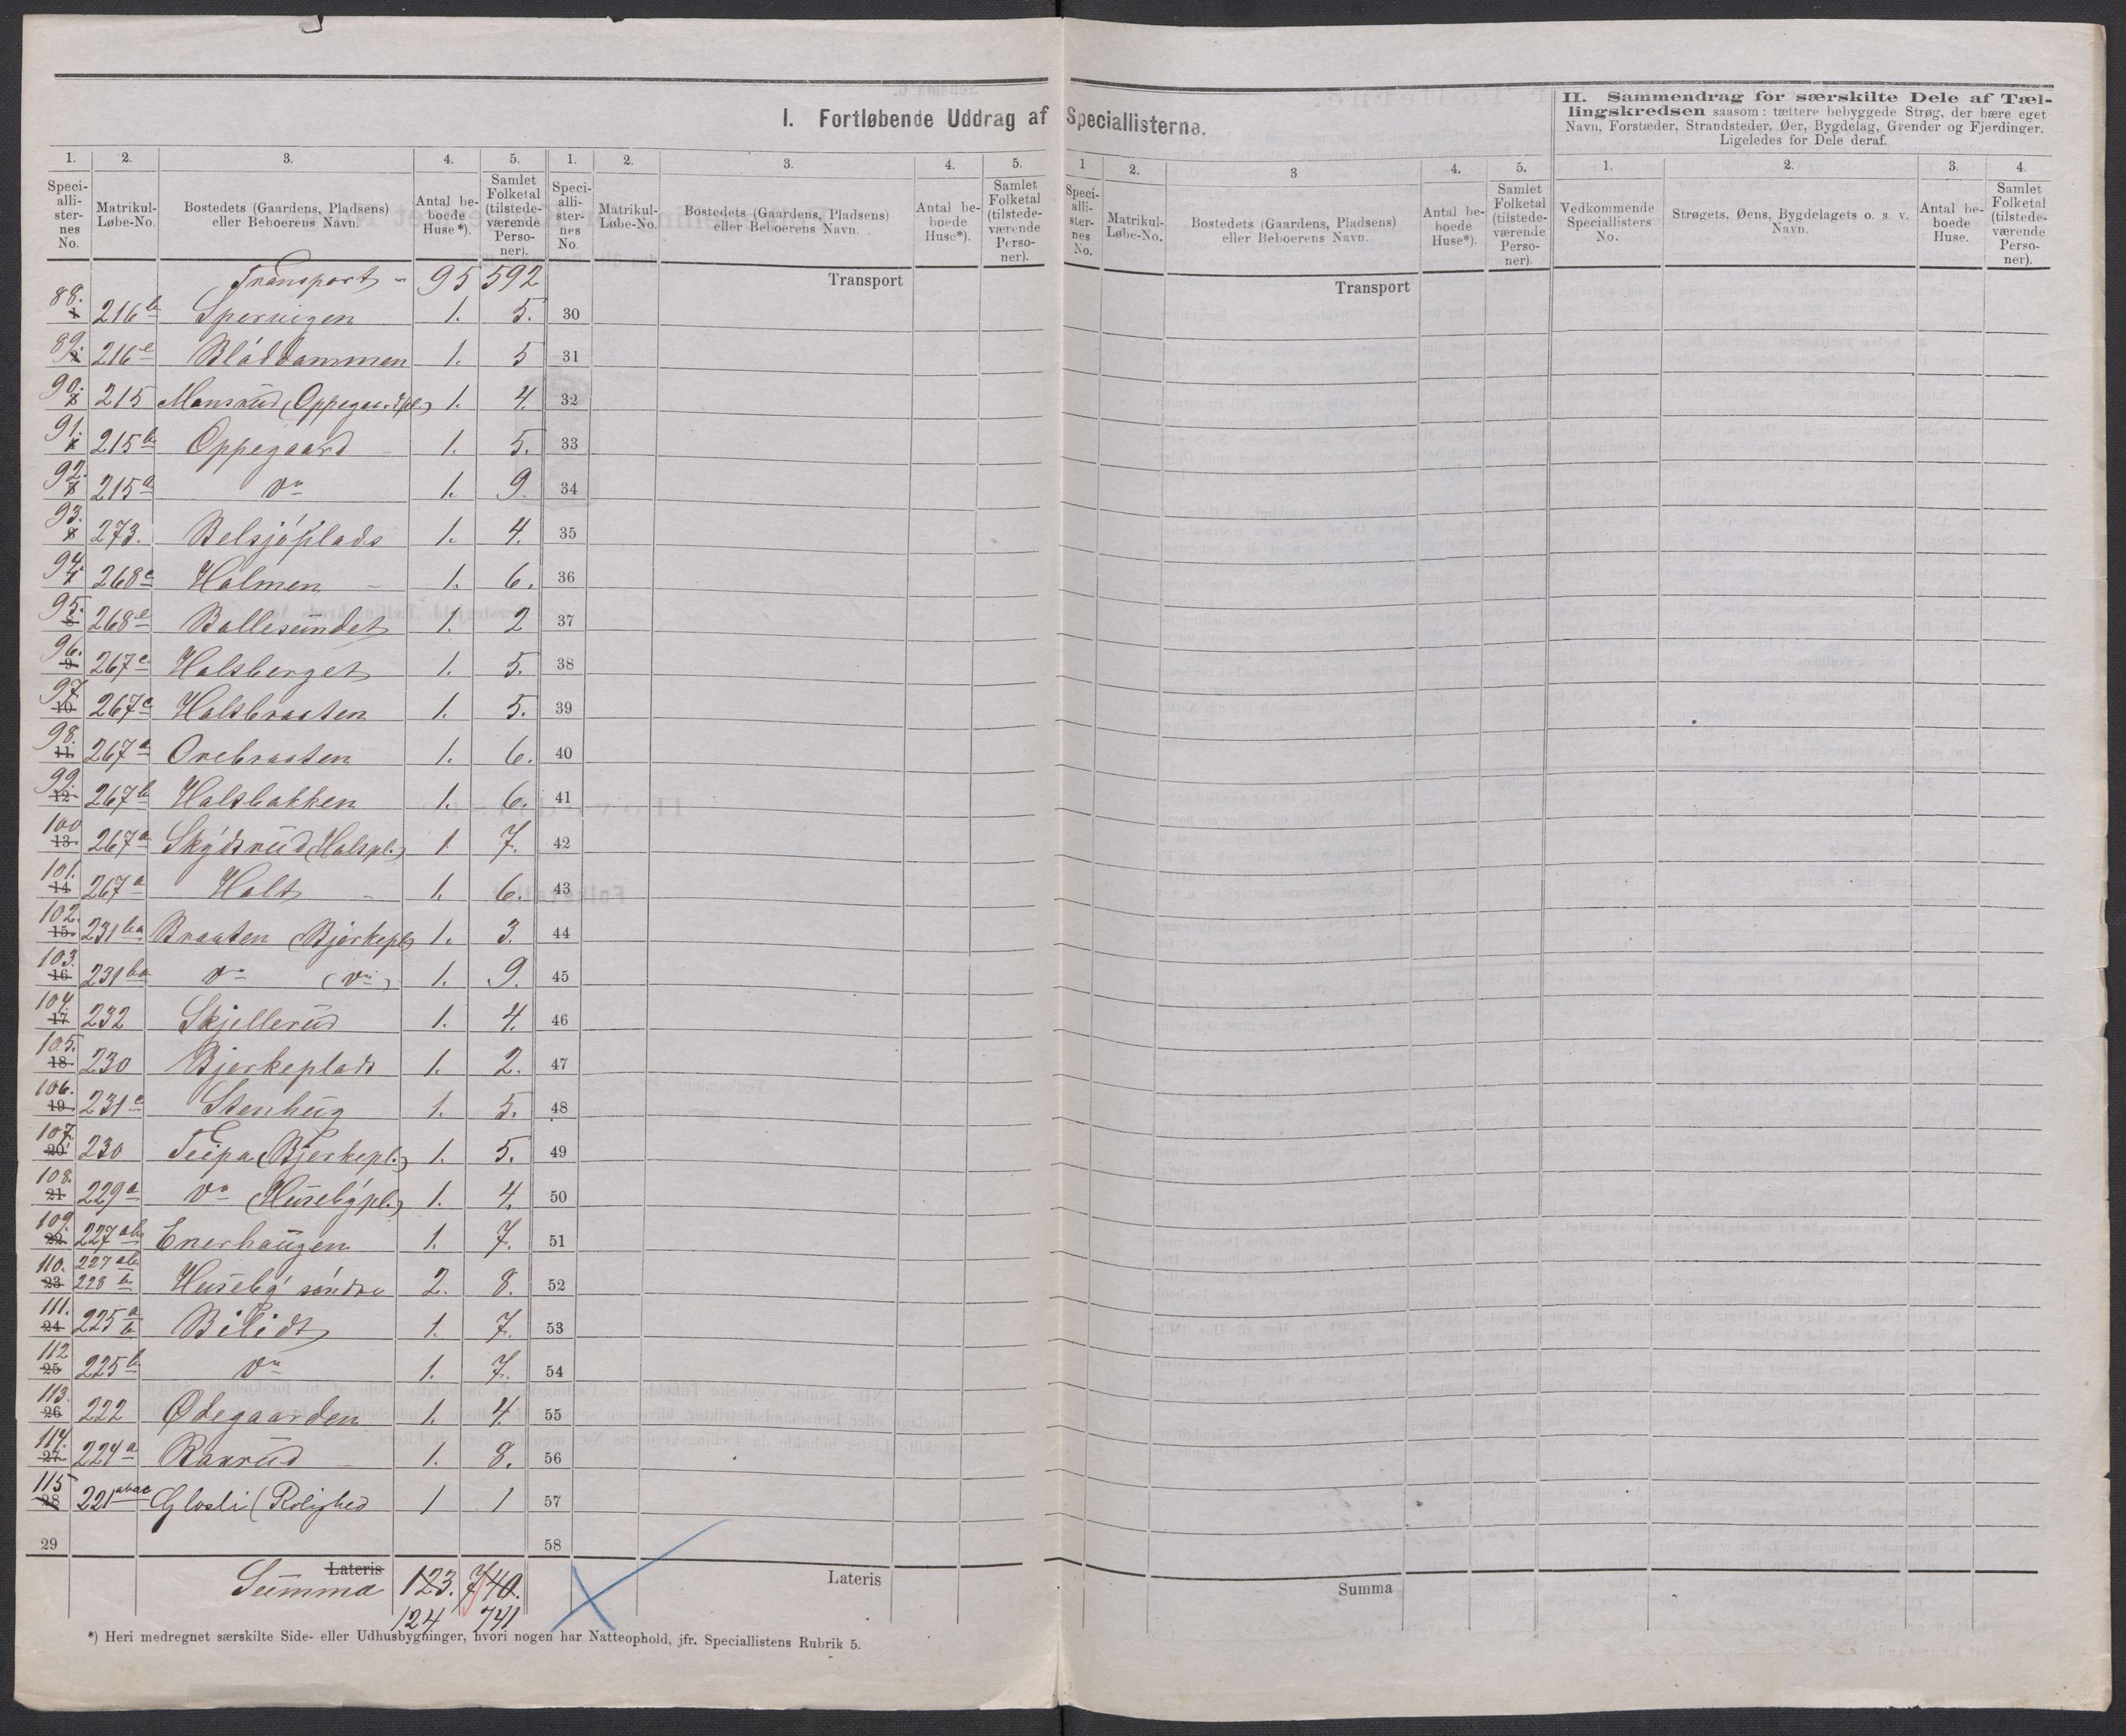 I. Fortløbende Uddrag af Speciallisterne.
II. Sammendrag for særskilte Dele af Tæl-
lingskredsen saasom: tættere bebyggede Strøg, der bære eget
Navn, Forstæder, Strandsteder, Øer, Bygdelag, Grender og Fjerdinger.
Ligeledes for Dele deraf.
1. 2. 3. 4. 5. 1. 2. 3. 4. 5. 1 2. 3 4. 5. 1. 2. 3. 4.
Speci-
alli-
ster-
nes
No.
Matrikul-
Løbe-No.
Bostedets (Gaardens, Pladsens)
eller Beboerens Navn.
Antal be-
boede
Huse*).
Samlet
Folketal
(tilstede-
værende
Perso-
ner).
Speci-
alli-
ster-
nes
No.
Matrikul-
Løbe-No.
Bostedets (Gaardens, Pladsens)
eller Beboerens Navn.
Antal be-
boede
Huse*).
Samlet
Folketal
(tilstede-
værende
Perso-
ner).
Speci-
alli-
ster-
nes
No.
Matrikul-
Løbe-No.
Bostedets (Gaardens, Pladsens)
eller Beboerens Navn.
Antal be-
boede
Huse*).
Samlet
Folketal
(tilstede-
værende
Perso-
ner).
Vedkommende
Speciallisters
No.
Strøgets, Øens, Bygdelagets o. s. v.
Navn.
Antal be-
boede
Huse.
Samlet
Folketal
(tilstede-
værende
Perso-
ner).
Transport - 95 592 Transport Transport
88. 216b Spervigen 1. 5. 30
89. 216e Bláddammen 1. 5 31
90. 215 Mansrud (Oppegaardpl.) 1. 4. 32
91. 215b Oppegaard 1. 5. 33
92. 215a Do 1. 9. 34
93. 273. Belsjöplads 1. 4. 35
94. 268c Holmen 1. 6. 36
95. 268e Ballesundet 1. 2 37
96. 267c Halsberget 1. 5. 38
97 267c Halsbraaten 1. 5. 39
98. 267a Orebraaten 1. 6. 40
99. 267b Halsbakken 1. 6. 41
100 267a Skýdsrud (Halspl.) 1 7. 42
101. 267a Halt 1. 6. 43
102. 231ba Braaten (Bjerkepl) 1. 3. 44
103. 231ba Do (Do) 1. 9. 45
104. 232 Skjellerud 1. 4. 46
105. 230 Bjerkeplads 1. 2. 47
106. 231c Stenhug 1. 5. 48
107. 230 Teipa (Bjerkepl.) 1. 5. 49
108. 229a Do (Husebýpl.) 1. 4. 50
109. 227ab Enerhaugen 1. 7. 51
110. 227ab 228b Husebý söndre 2. 8. 52
111. 225a b Bilidt 1. 7. 53
112 225b Do 1. 7. 54
113. 222 Ødegaarden 1. 4. 55
114. 224a Ranrud 1. 8. 56
115 221 Glosli (Rolighed 1 1 57
29 58
Lateris Lateris Summa
Summa 123. 740.
124 741
*) Heri medregnet særskilte Side- eller Udhusbygninger, hvori nogen har Natteophold, jfr. Speciallistens Rubrik 5.